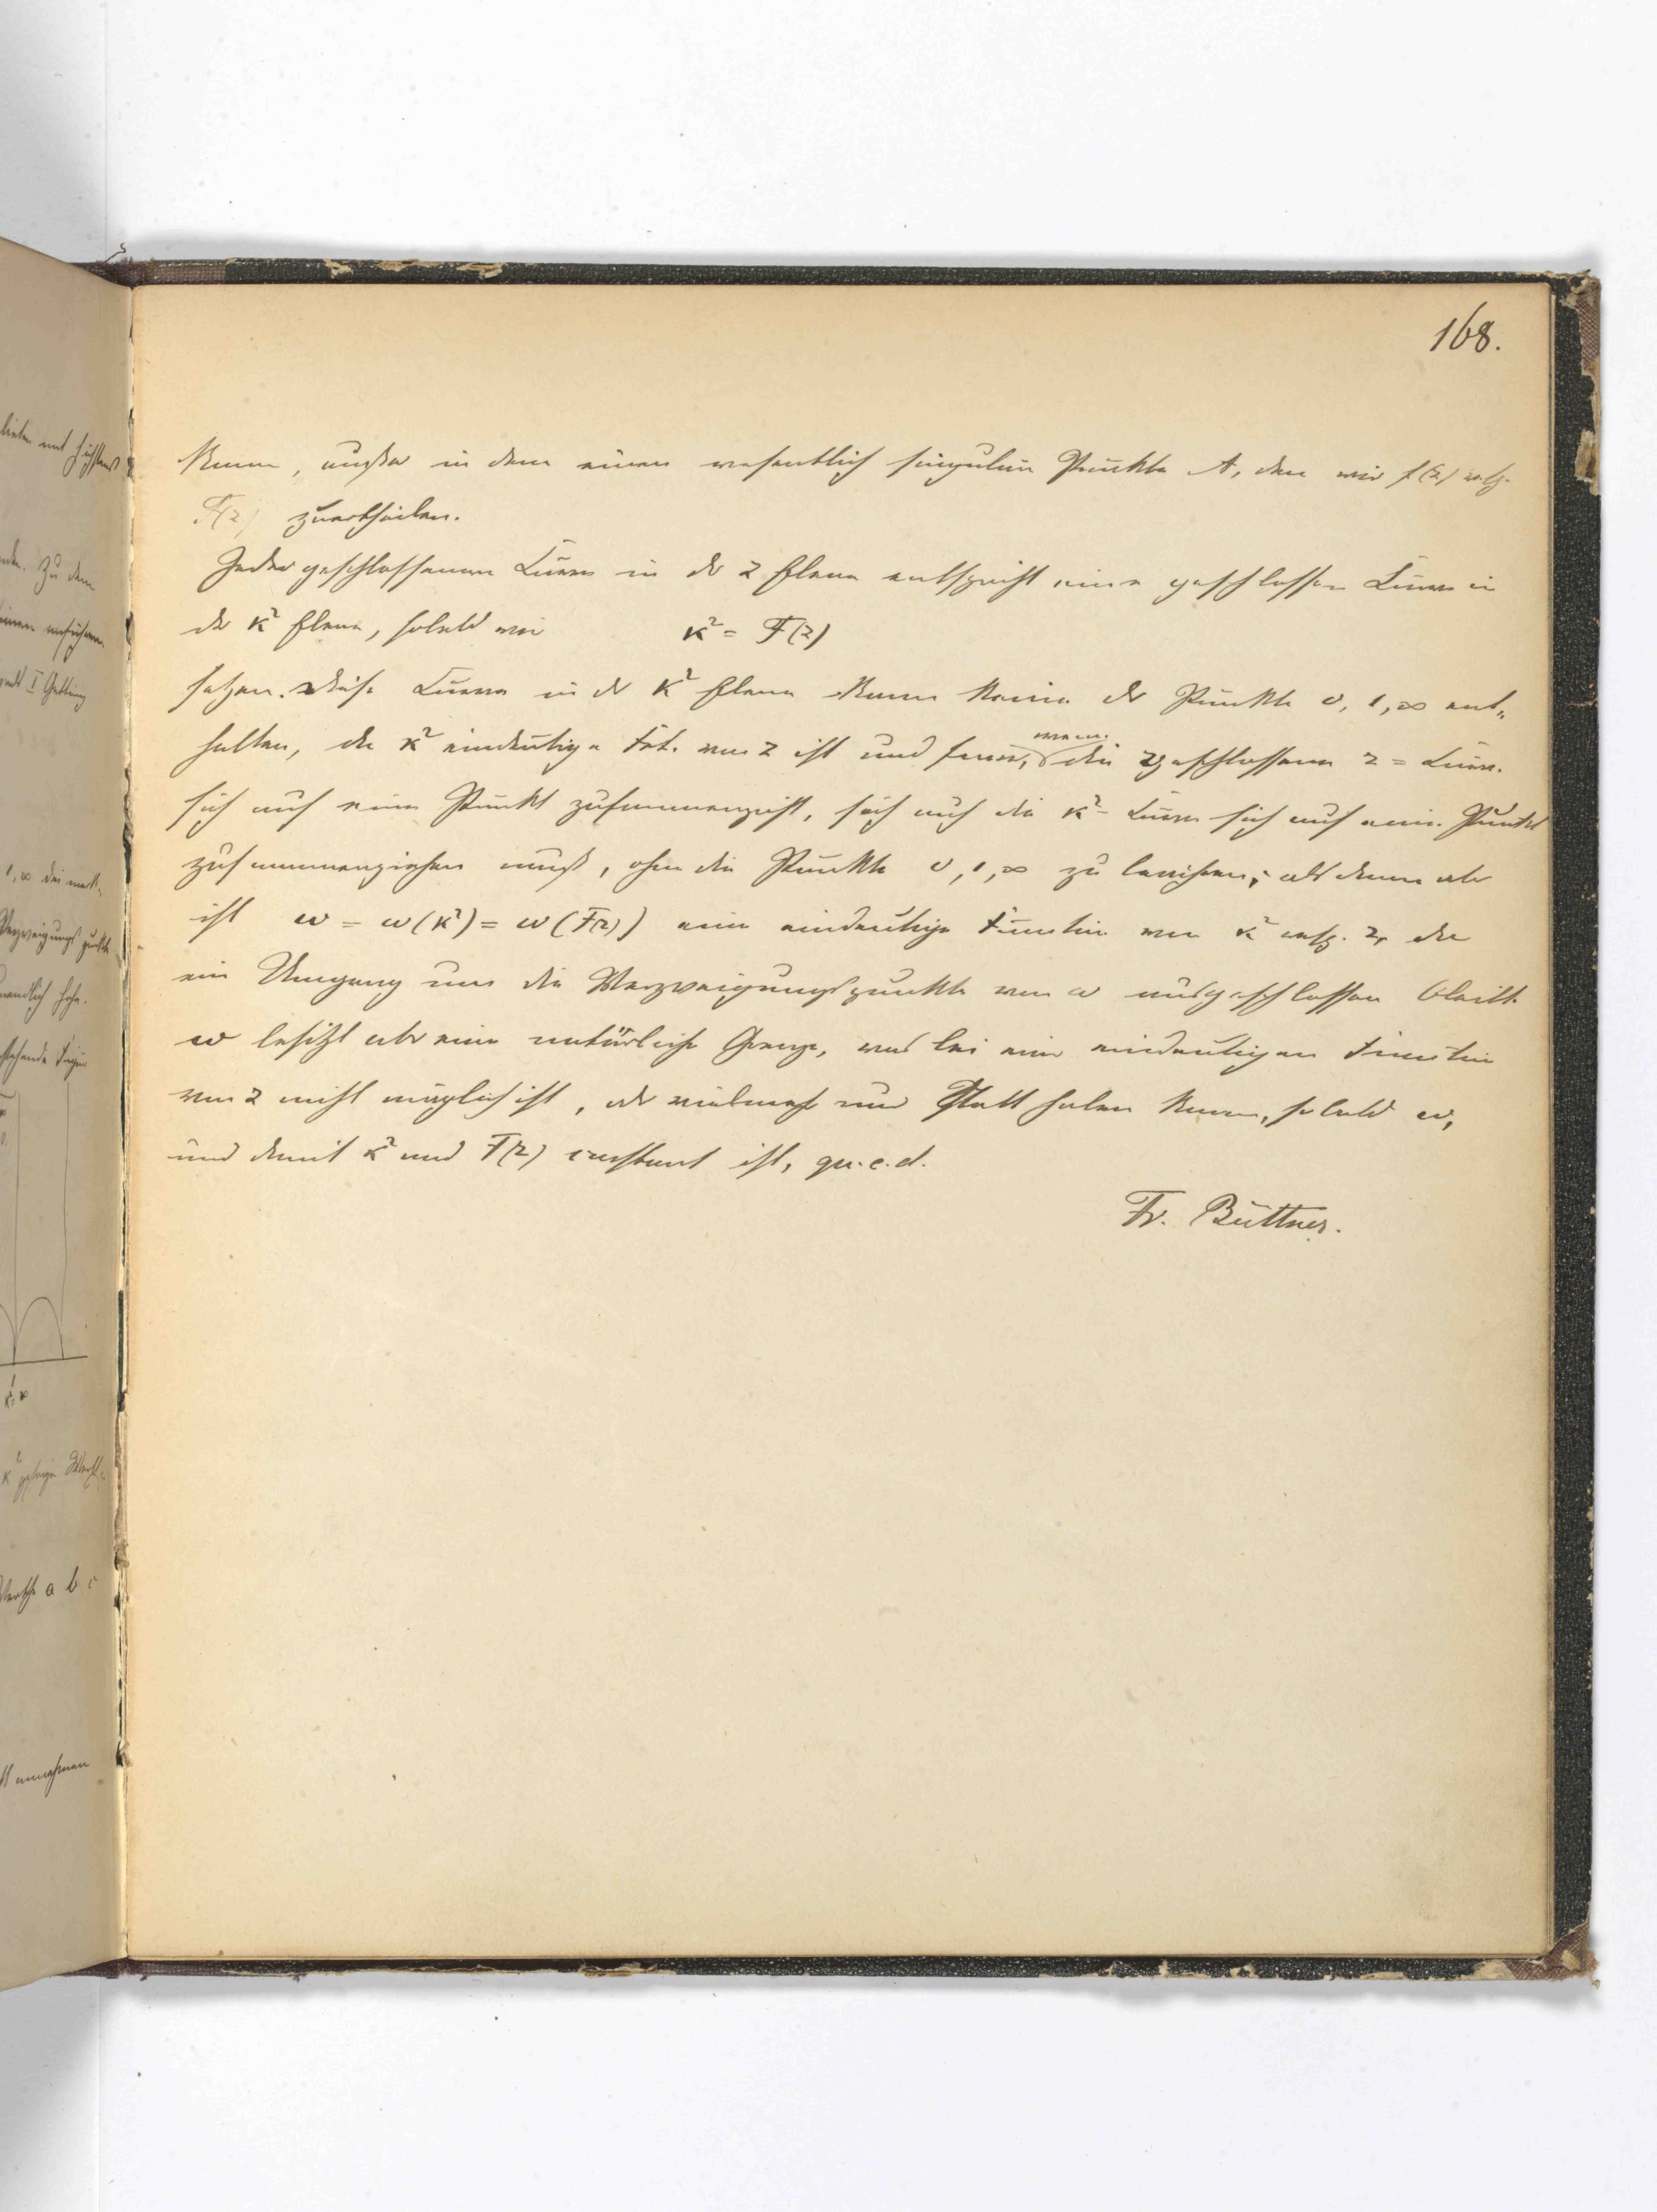 168.
kann, außer in dem einen wesentlich singulären Punkte A, den wir f(z) resp.
F(z) zuertheilen.
Jeder geschlossenen Curve in der z Ebene entspricht eine geschlossene Curve in
der κ² Ebene, sobald wir κ² = F(z)
setzen. Diese Curve in der κ² Ebene kann keinen der Punkte 0, 1, ∞ ent-
halten, da κ² eindeutige Fct. von z ist und ferner, wenn die geschlossene z = Curve
sich auf einen Punkt zusammenzieht, sich auch die κ² - Curve sich auf einen Punkt
zusammenziehen muß, ohne die Punkte 0, 1, ∞ zu berühren; alsdann aber
ist ω = ω(κ²) = ω(F(z)) eine eindeutige Function von κ² resp. z, da
ein Umgang um die Verzweigungspunkte von ω ausgeschlossen bleibt.
ω besitzt aber eine natürliche Grenze, was bei einer eindeutigen Function
von z nicht möglich ist, oder vielmehr nur Statt haben kann, sobald ω,
und damit κ² und F(z) constant ist, qu. e. d.
Fr. Büttner.
1, ∞ die
Verzweigungspunkte
κ²
a b c
annehmen